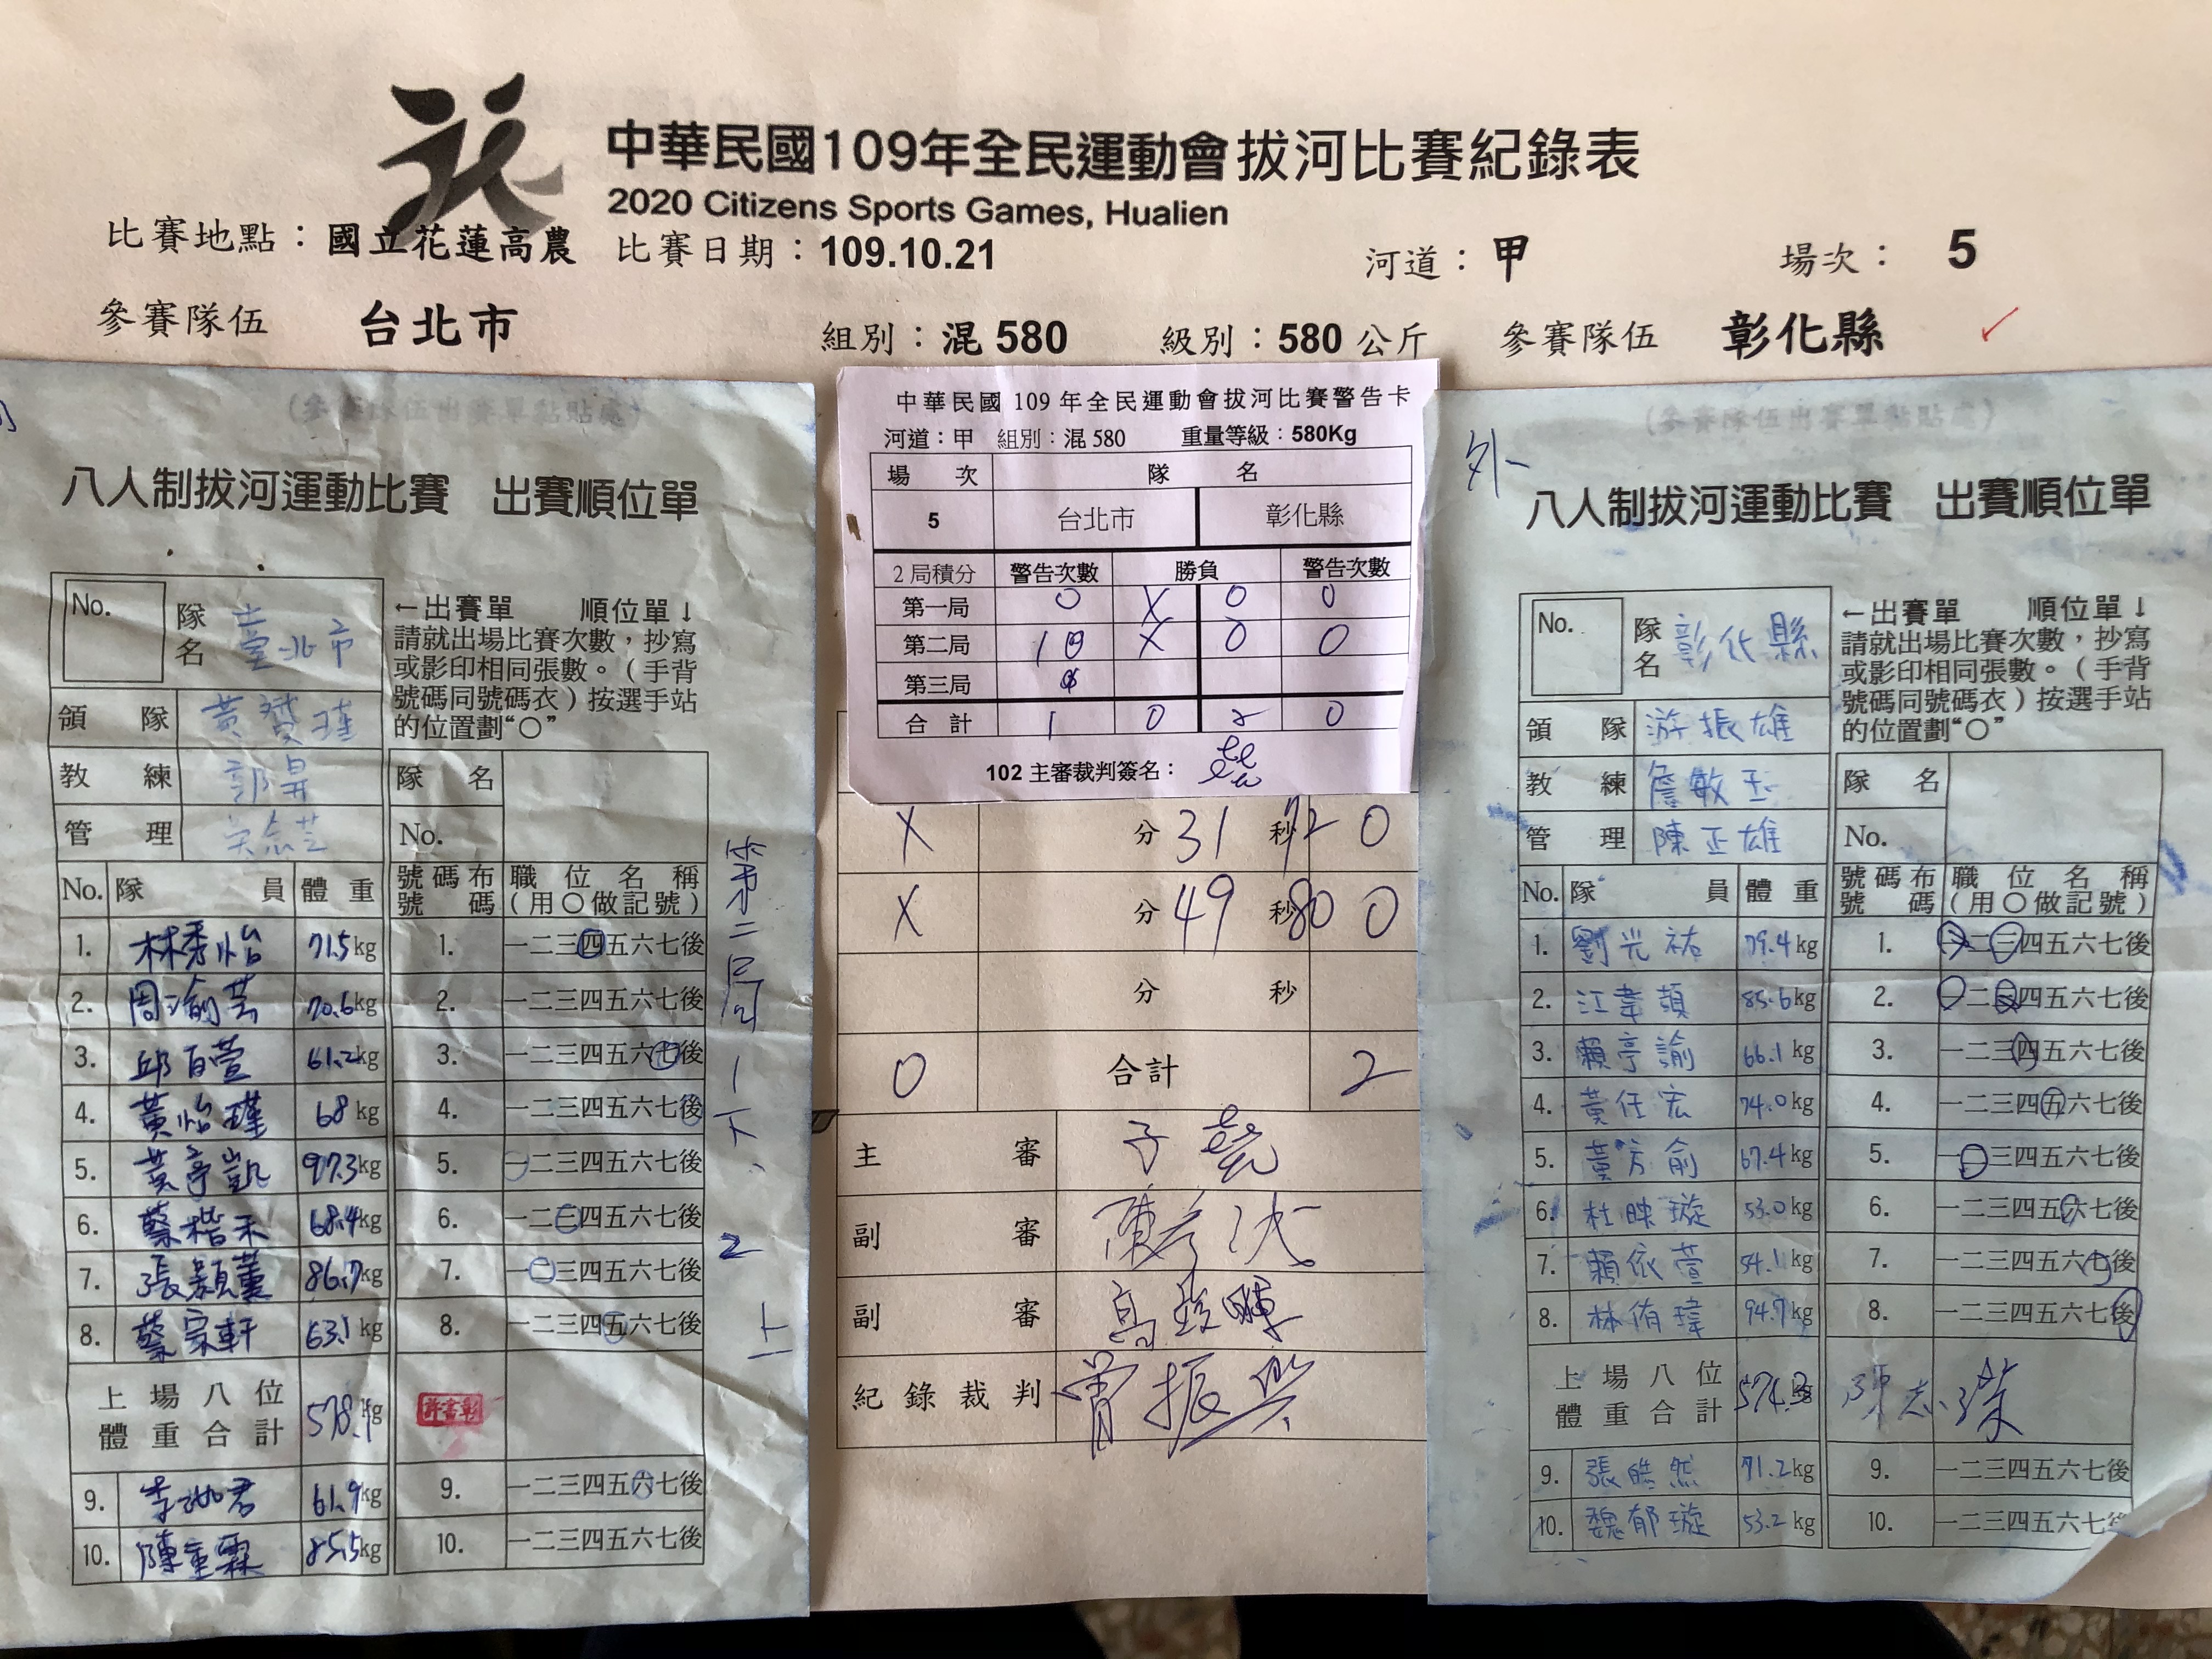 中華民國109年全民運動會拔河比賽紀錄表
2020 Citizens Sports Games, Hualien
比賽地點：國立花蓮高農 比賽日期：109.10.21 河道：甲 場次：5
參賽隊伍 台北市 組別：混 580 級別：580 公斤 參賽隊伍 彰化縣
(參賽隊伍出賽單黏貼處)
八人制拔河運動比賽 出賽順位單
No. 隊名 臺北市
←出賽單 順位單↓
請就出場比賽次數，抄寫
或影印相同張數。（手背
號碼同號碼衣）按選手站
的位置劃“○”
領隊
教練 郭昇
管理
隊名
No.
No. 隊員 體重 號碼布號碼 職位名稱（用○做記號）
1. 林秀怡 71.5kg 1. 一二三四五六七後
2. 周渝芸 70.6kg 2. 一二三四五六七後
3. 邱百萱 61.2kg 3. 一二三四五六七後
4. 黃怡瑾 68kg 4. 一二三四五六七後
5. 黃亭凱 97.3kg 5. 一二三四五六七後
6. 蔡楷禾 68.4kg 6. 一二三四五六七後
7. 張顥薰 86.7kg 7. 一二三四五六七後
8. 蔡宗軒 63.1kg 8. 一二三四五六七後
上場八位體重合計 578.1kg
9. 61.9kg 9. 一二三四五六七後
10. 陳重霖 85.5kg 10. 一二三四五六七後
第二局
1下、
2上
中華民國 109 年全民運動會拔河比賽警告卡
河道：甲 組別：混 580 重量等級：580Kg
場次 隊名
5 台北市 彰化縣
2局積分 警告次數 勝負 警告次數
第一局 0 X 0 0
第二局 1 X 0 0
第三局
合計 1 0 2 0
102 主審裁判簽名：
X 分 31 秒 72 0
X 分 49 秒 80 0
分 秒
0 合計 2
主審
副審
副審
紀錄裁判
(參賽隊伍出賽單黏貼處)
外
八人制拔河運動比賽 出賽順位單
No. 隊名 彰化縣
←出賽單 順位單↓
請就出場比賽次數，抄寫
或影印相同張數。（手背
號碼同號碼衣）按選手站
的位置劃“○”
領隊 游振雄
教練 詹敏玉
管理 陳正雄
隊名
No.
No. 隊員 體重 號碼布號碼 職位名稱（用○做記號）
1. 劉光祐 79.4kg 1. 一二三四五六七後
2. 江韋蓢 85.6kg 2. 一二三四五六七後
3. 賴亭諭 66.1kg 3. 一二三四五六七後
4. 黃任宏 74.0kg 4. 一二三四五六七後
5. 黃方俞 67.4kg 5. 一二三四五六七後
6. 杜映璇 53.0kg 6. 一二三四五六七後
7. 賴依萱 54.1kg 7. 一二三四五六七後
8. 林侑瑋 94.7kg 8. 一二三四五六七後
上場八位體重合計 574.3kg
9. 張皓然 71.2kg 9. 一二三四五六七後
10. 魏郁璇 53.2kg 10. 一二三四五六七